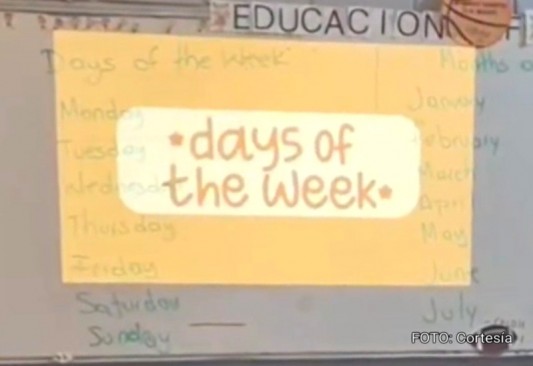 EDUCACION F
Days of the Week
Months o
Monday
Tuesday
Wednesd
Thursday
Friday
Saturday
Sunday
days of
the week
January
February
March
April
May
June
July
FOTO: Cortesía